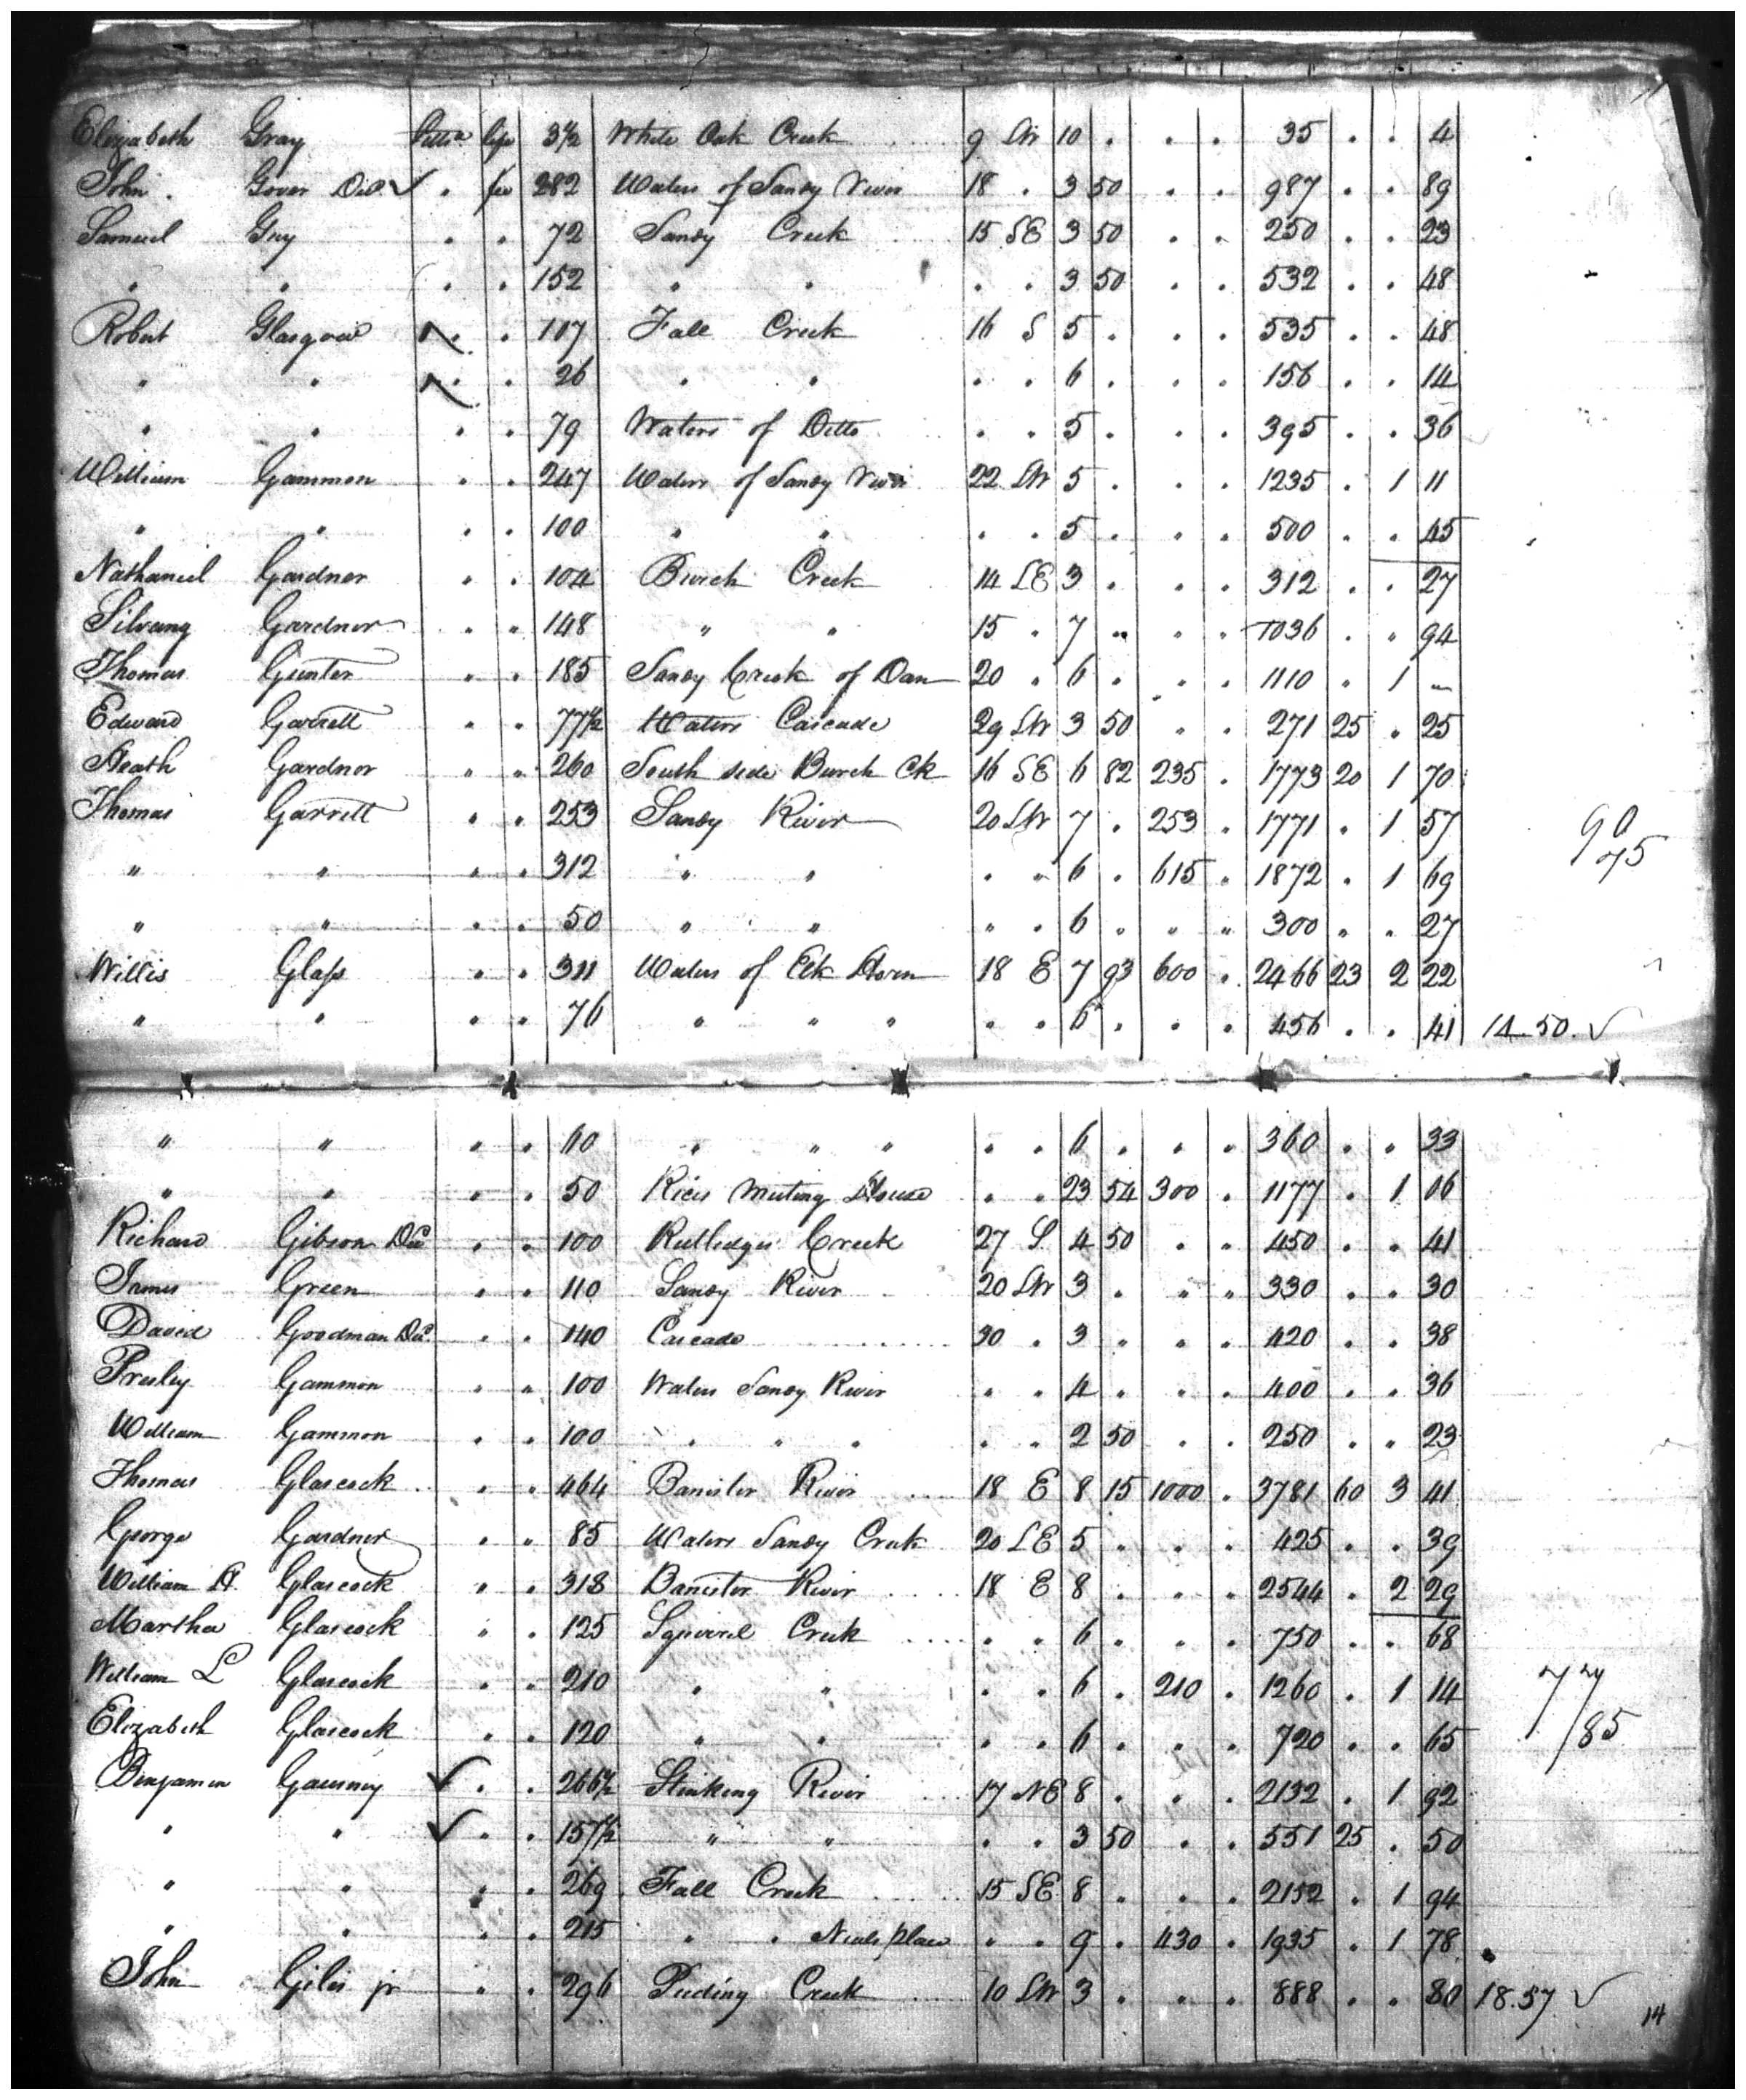 Elizabeth Gray Pittsa life 3½ White Oak Creek 9 SW 10 . . . 35 . . 4
John Gover Dec. ✓ . fee 282 Waters of Sandy River 18 . 3 50 . . 987 . . 89
Samuel Guy . . 72 Sandy Creek 15 SE 3 50 . . 250 . . 23
" " . . 152 " " . . 3 50 . . 532 . . 48
Robert Glasgow . . 107 Fall Creek 16 S 5 . . . 535 . . 48
" " . . 26 " " . . 6 . . . 156 . . 14
" " . . 79 Waters of Ditto . . 5 . . . 395 . . 36
William Gammon . . 247 Waters of Sandy River 22 SW 5 . . . 1235 . 1 11
" " . . 100 " " . . 5 . . . 500 . . 45
Nathaniel Gardner . . 104 Burch Creek 14 SE 3 . . . 312 . . 27
Silvany Gardner . " 148 " " 15 . 7 " " " 1036 . " 94
Thomas Gunter " . 185 Sandy Creek of Dan 20 " 6 . . . 1110 " 1 "
Edward Garrett " " 77½ Waters Cascade 29 SW 3 50 " . 271 25 . 25
Heath Gardner " " 260 South side Burch Ck 16 SE 6 82 235 . 1773 20 1 70
Thomas Garrett . . 253 Sandy River 20 SW 7 . 253 . 1771 . 1 57
90
75
" " . . 312 " " . " 6 . 615 " 1872 . 1 69
" " . . 50 " " " . 6 . " " 300 " . 27
Willis Glass . . 311 Waters of Elk Horn 18 E 7 93 600 . 2466 23 2 22
" " . . 76 " " " . . 6 . . . 456 . . 41 14.50 ✓
" " . . 60 " " " . . 6 . . . 360 . . 33
" " . . 50 Rices Meeting House . . 23 54 300 . 1177 . 1 06
Richard Gibson Dec . . 100 Rutledges Creek 27 S. 4 50 . " 450 . . 41
James Green . . 110 Sandy River 20 SW 3 . " " 330 . . 30
David Goodman Dec. . . 140 Cascade 30 . 3 " " . 420 . . 38
Presley Gammon . " 100 Waters Sandy River . . 4 . . . 400 . . 36
William Gammon . . 100 " " " . . 2 50 . . 250 . " 23
Thomas Glascock . . 464 Banister River 18 E 8 15 1000 . 3781 60 3 41
George Gardner . " 85 Waters Sandy Creek 20 SE 5 " . . 425 . . 39
William H. Glascock " . 318 Banister River 18 E 8 . . . 2544 . 2 29
Martha Glascock " . 125 Squirrel Creek . . 6 . . . 750 . . 68
William L Glascock . . 210 " " . . 6 . 210 . 1260 . 1 14
Elizabeth Glascock . . 120 " " . . 6 . . . 720 . . 65
85
Benjamin ✓ . . 266½ Stinking River 17 NE 8 . . . 2132 . 1 92
" " ✓ . . 157½ " " . . 3 50 . . 551 25 . 50
" " . . 269 Fall Creek 15 SE 8 . . . 2152 . 1 94
" " . . 215 " " Neals place . . 9 . 430 . 1935 . 1 78
John Giles jr . . 296 Puding Creek 10 SW 3 . . . 888 . . 80 18.57 ✓
14